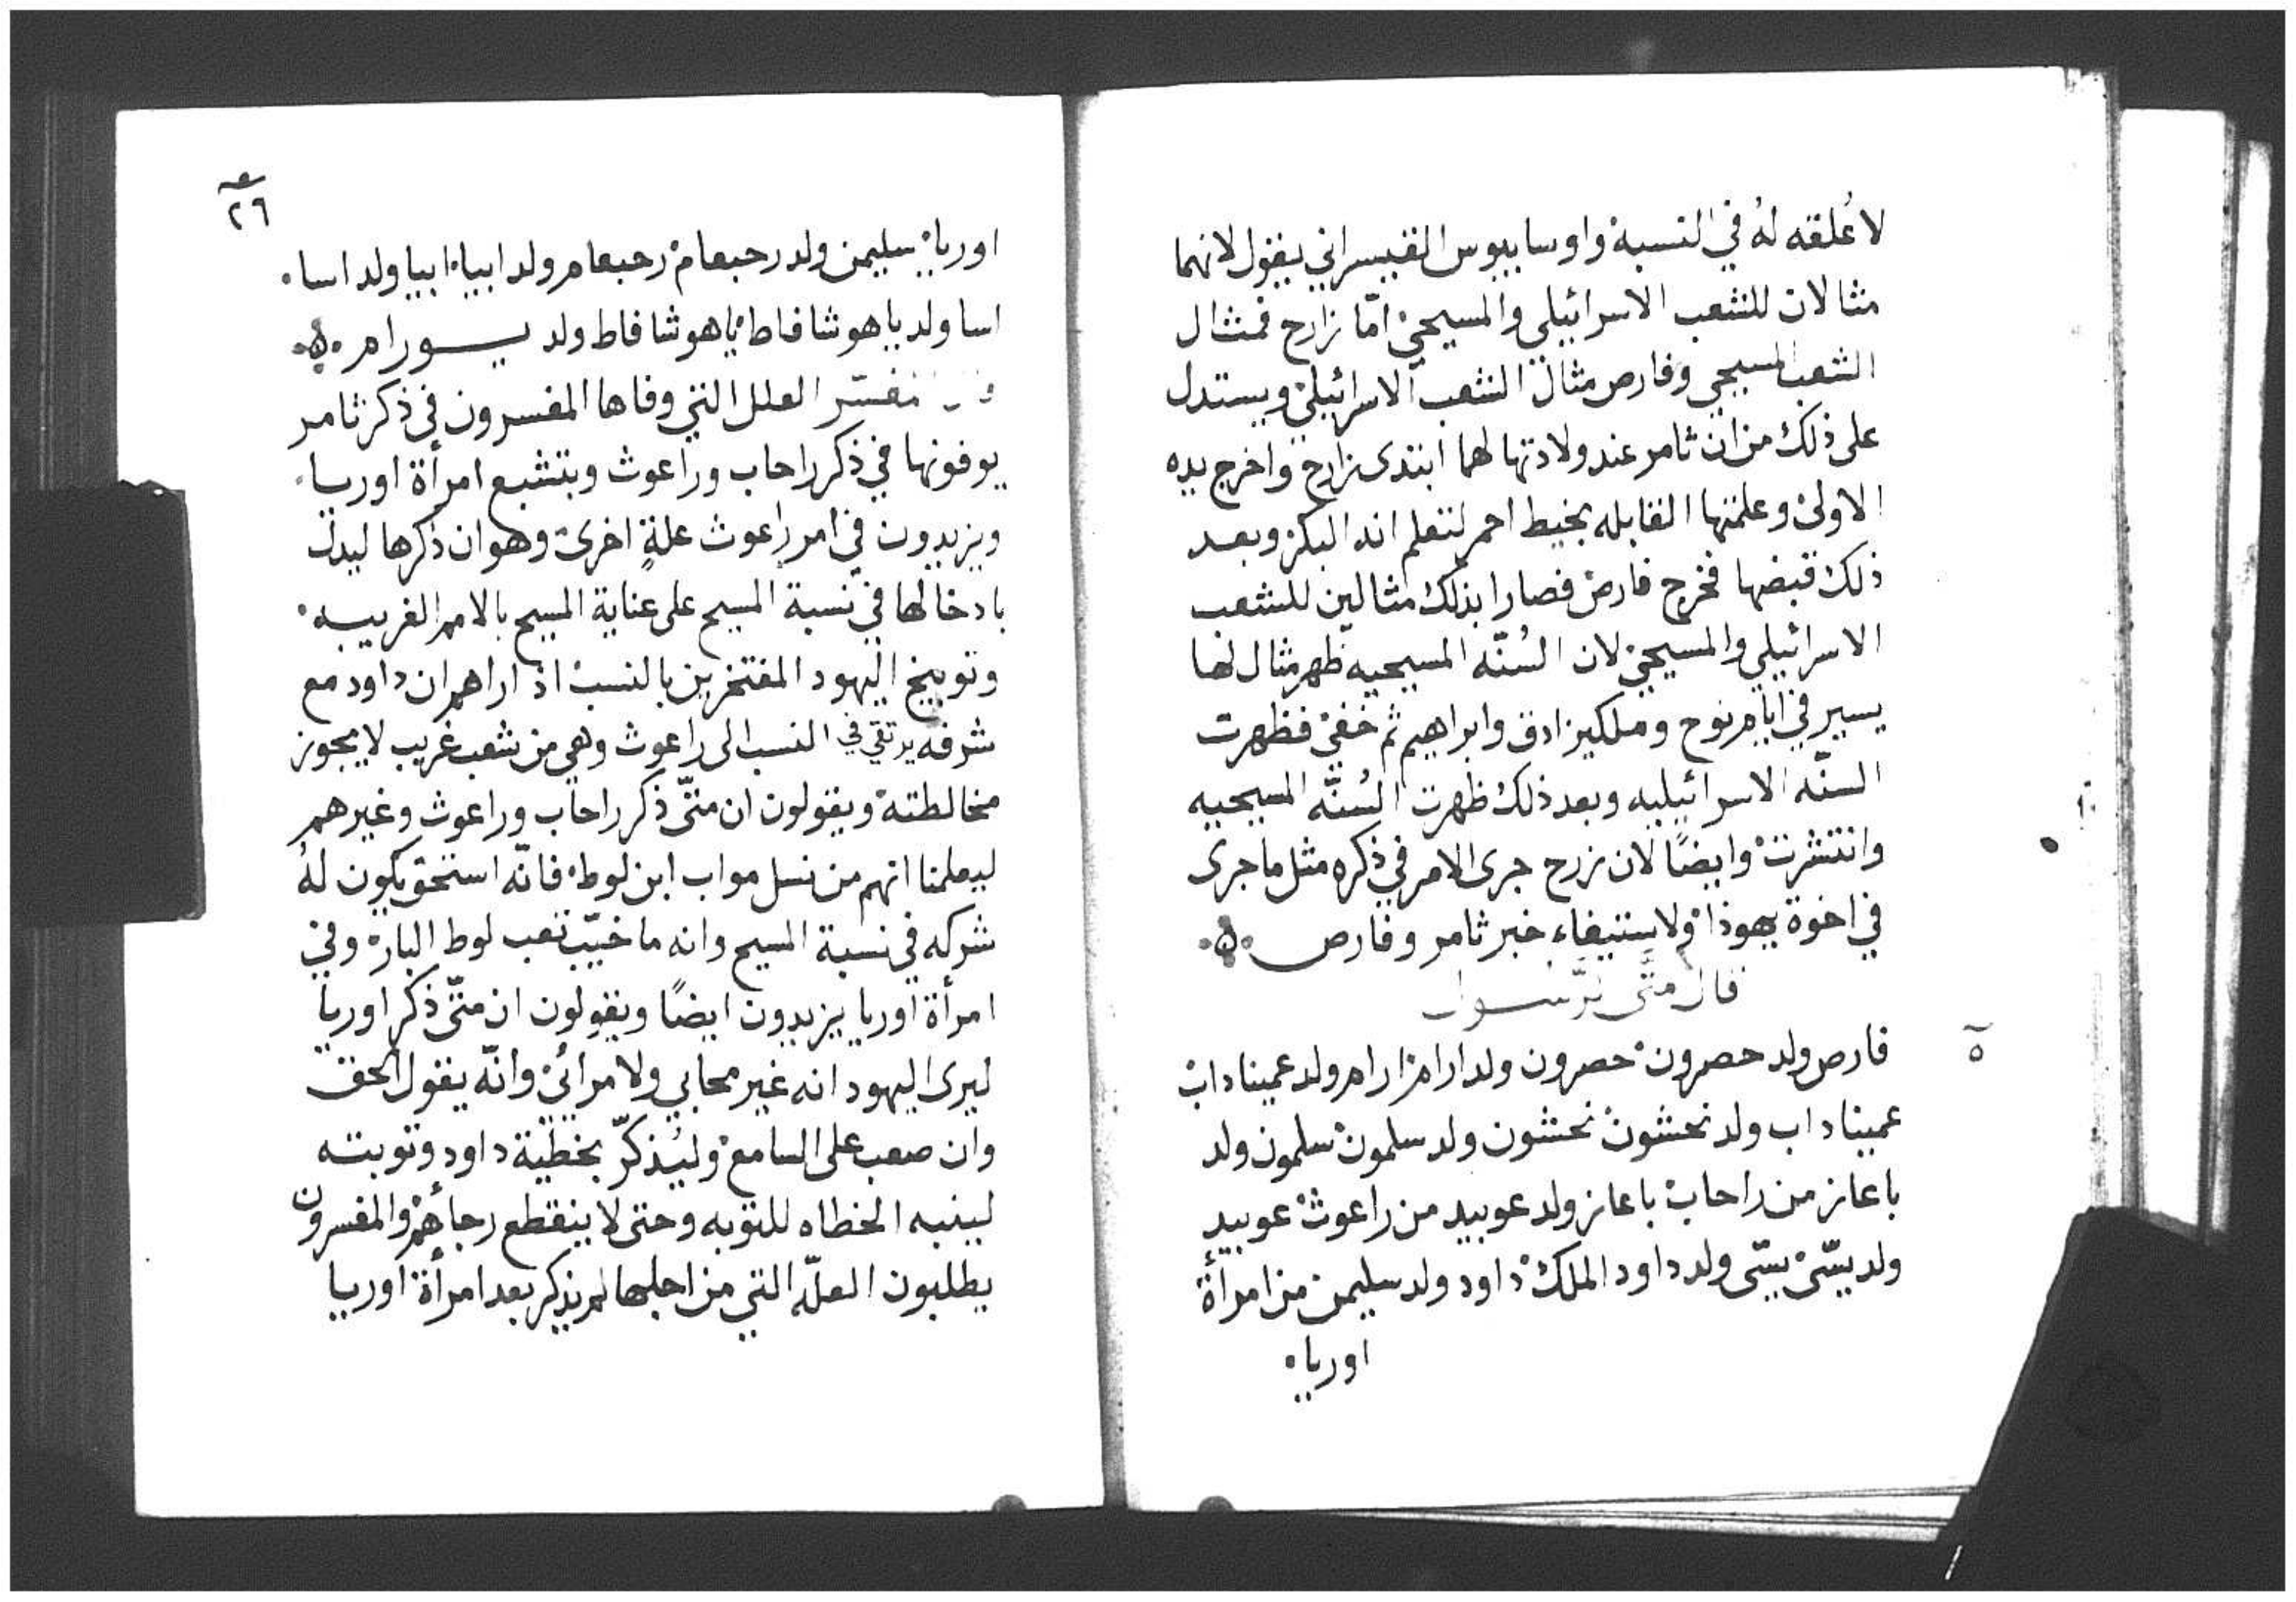 لا عُلقه لهُ في النسبة واوسابيوس القيسراني يقول لانهما
مثالان للشعب الاسرائيلي والمسيحي امّا زارح فمثال
الشعب المسيحي وفارص مثال الشعب الاسرائيلي ويستدل
على ذلك من ان ثامر عند ولادتها لهما ابتدى زارح واخرج يده
الاولى وعلمتها القابله بخيط احمر لتعلم انه البكر وبعد
ذلك قبضها فخرج فارص فصارا بذلك مثالين للشعب
الاسرائيلي والمسيحي لان السُنّه المسيحيه ظهر مثال لها
يسير في ايام نوح وملكيزادق وابراهيم ثم خفي فظهرت
السنّه الاسرائيليه وبعد ذلك ظهرت السُنّه المسيحيه
وانتشرت وايضًا لان زرح جرى الامر في ذكره مثل ما جرى
في اخوة يهوذا ولاستيفاء خبر ثامر وفارص
قال متّى الرّسول
٥
فارص ولد حصرون حصرون ولد ارام ارام ولد عميناداب
عميناداب ولد نحشون نحشون ولد سلمون سلمون ولد
باعاز من راحاب باعاز ولد عوبيد من راعوث عوبيد
ولد يسّى يسّى ولد داود الملك داود ولد سليمن من امرأة
اوريا
٢٦
اوريا سليمن ولد رحبعام رحبعام ولد ابيا ابيا ولد اسا
اسا ولد ياهوشافاط ياهوشافاط ولد يورام
المفسّر العلل التي وفاها المفسرون في ذكر ثامر
يوفونها في ذكر راحاب وراعوث وبتشبع امرأة اوريا
ويزيدون في امر راعوث علةٍ اخرى وهو ان ذكرها ليدل
بادخالها في نسبة المسيح على عناية المسيح بالامم الغريبه
وتوبيخ اليهود المفتخرين بالنسب اذ اراهم ان داود مع
شرفه يرتقي في النسب الى راعوث وهي من شعب غريب لا يجوز
مخالطته ويقولون ان متّى ذكر راحاب وراعوث وغيرهم
ليعلمنا انهم من نسل مواب ابن لوط فانّه استحق يكون لهُ
شركه في نسبة المسيح وانه ما خيّب تعب لوط البار وفي
امرأة اوريا يزيدون ايضًا ويقولون ان متّى ذكر اوريا
ليرى اليهود انه غير محابي ولا مرائي وانّه يقول الحق
وان صعب على السامع وليُذكّر بخطيّة داود وتوبته
لينبه الخطاه للتوبه وحتى لا ينقطع رجاءهم والمفسرون
يطلبون العلّه التي من اجلها لم يذكر بعد امرأة اوريا